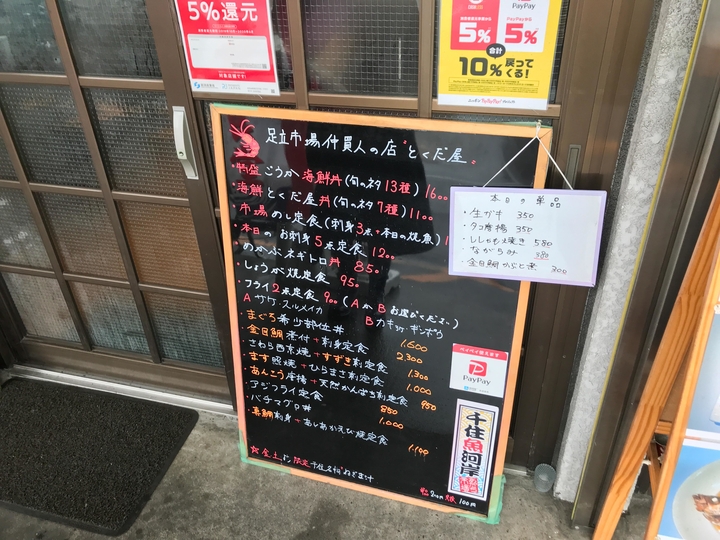 5%還元
対象店舗です!
PayPay
5%
5%
合計
10%戻って
くる!
足立市場仲買人の店"とくだ屋"
・特盛ごうか海鮮丼(旬のネタ13種)1600
・海鮮とくだ屋丼(旬のネタ7種)1100
・市場めし定食(刺身3点+本日の焼魚)1
・本日のお刺身5点定食 1200
・めかぶネギトロ丼 850
・しょうが焼定食 950
・フライ2点定食 900(AかBお選びください)
Aサケ・スルメイカ
・まぐろ希少部位丼 1.600
・金目鯛煮付+刺身定食 2,300
・さわら西京焼+すずき刺定食 1.300
・ます照焼+ひらまさ刺定食 1.000
・あんこう唐揚+天然かんぱち刺定食 950
・アジフライ定食 850
・バチマグロ丼 1.000
・真鯛刺身+あしあかえび焼定食 1.100
本日の単品
・生ガキ 350
・タコ唐揚 350
・ししゃも焼き 580
・ながらみ 380
・金目鯛かぶと煮 300
PayPay
千住魚河岸
100円